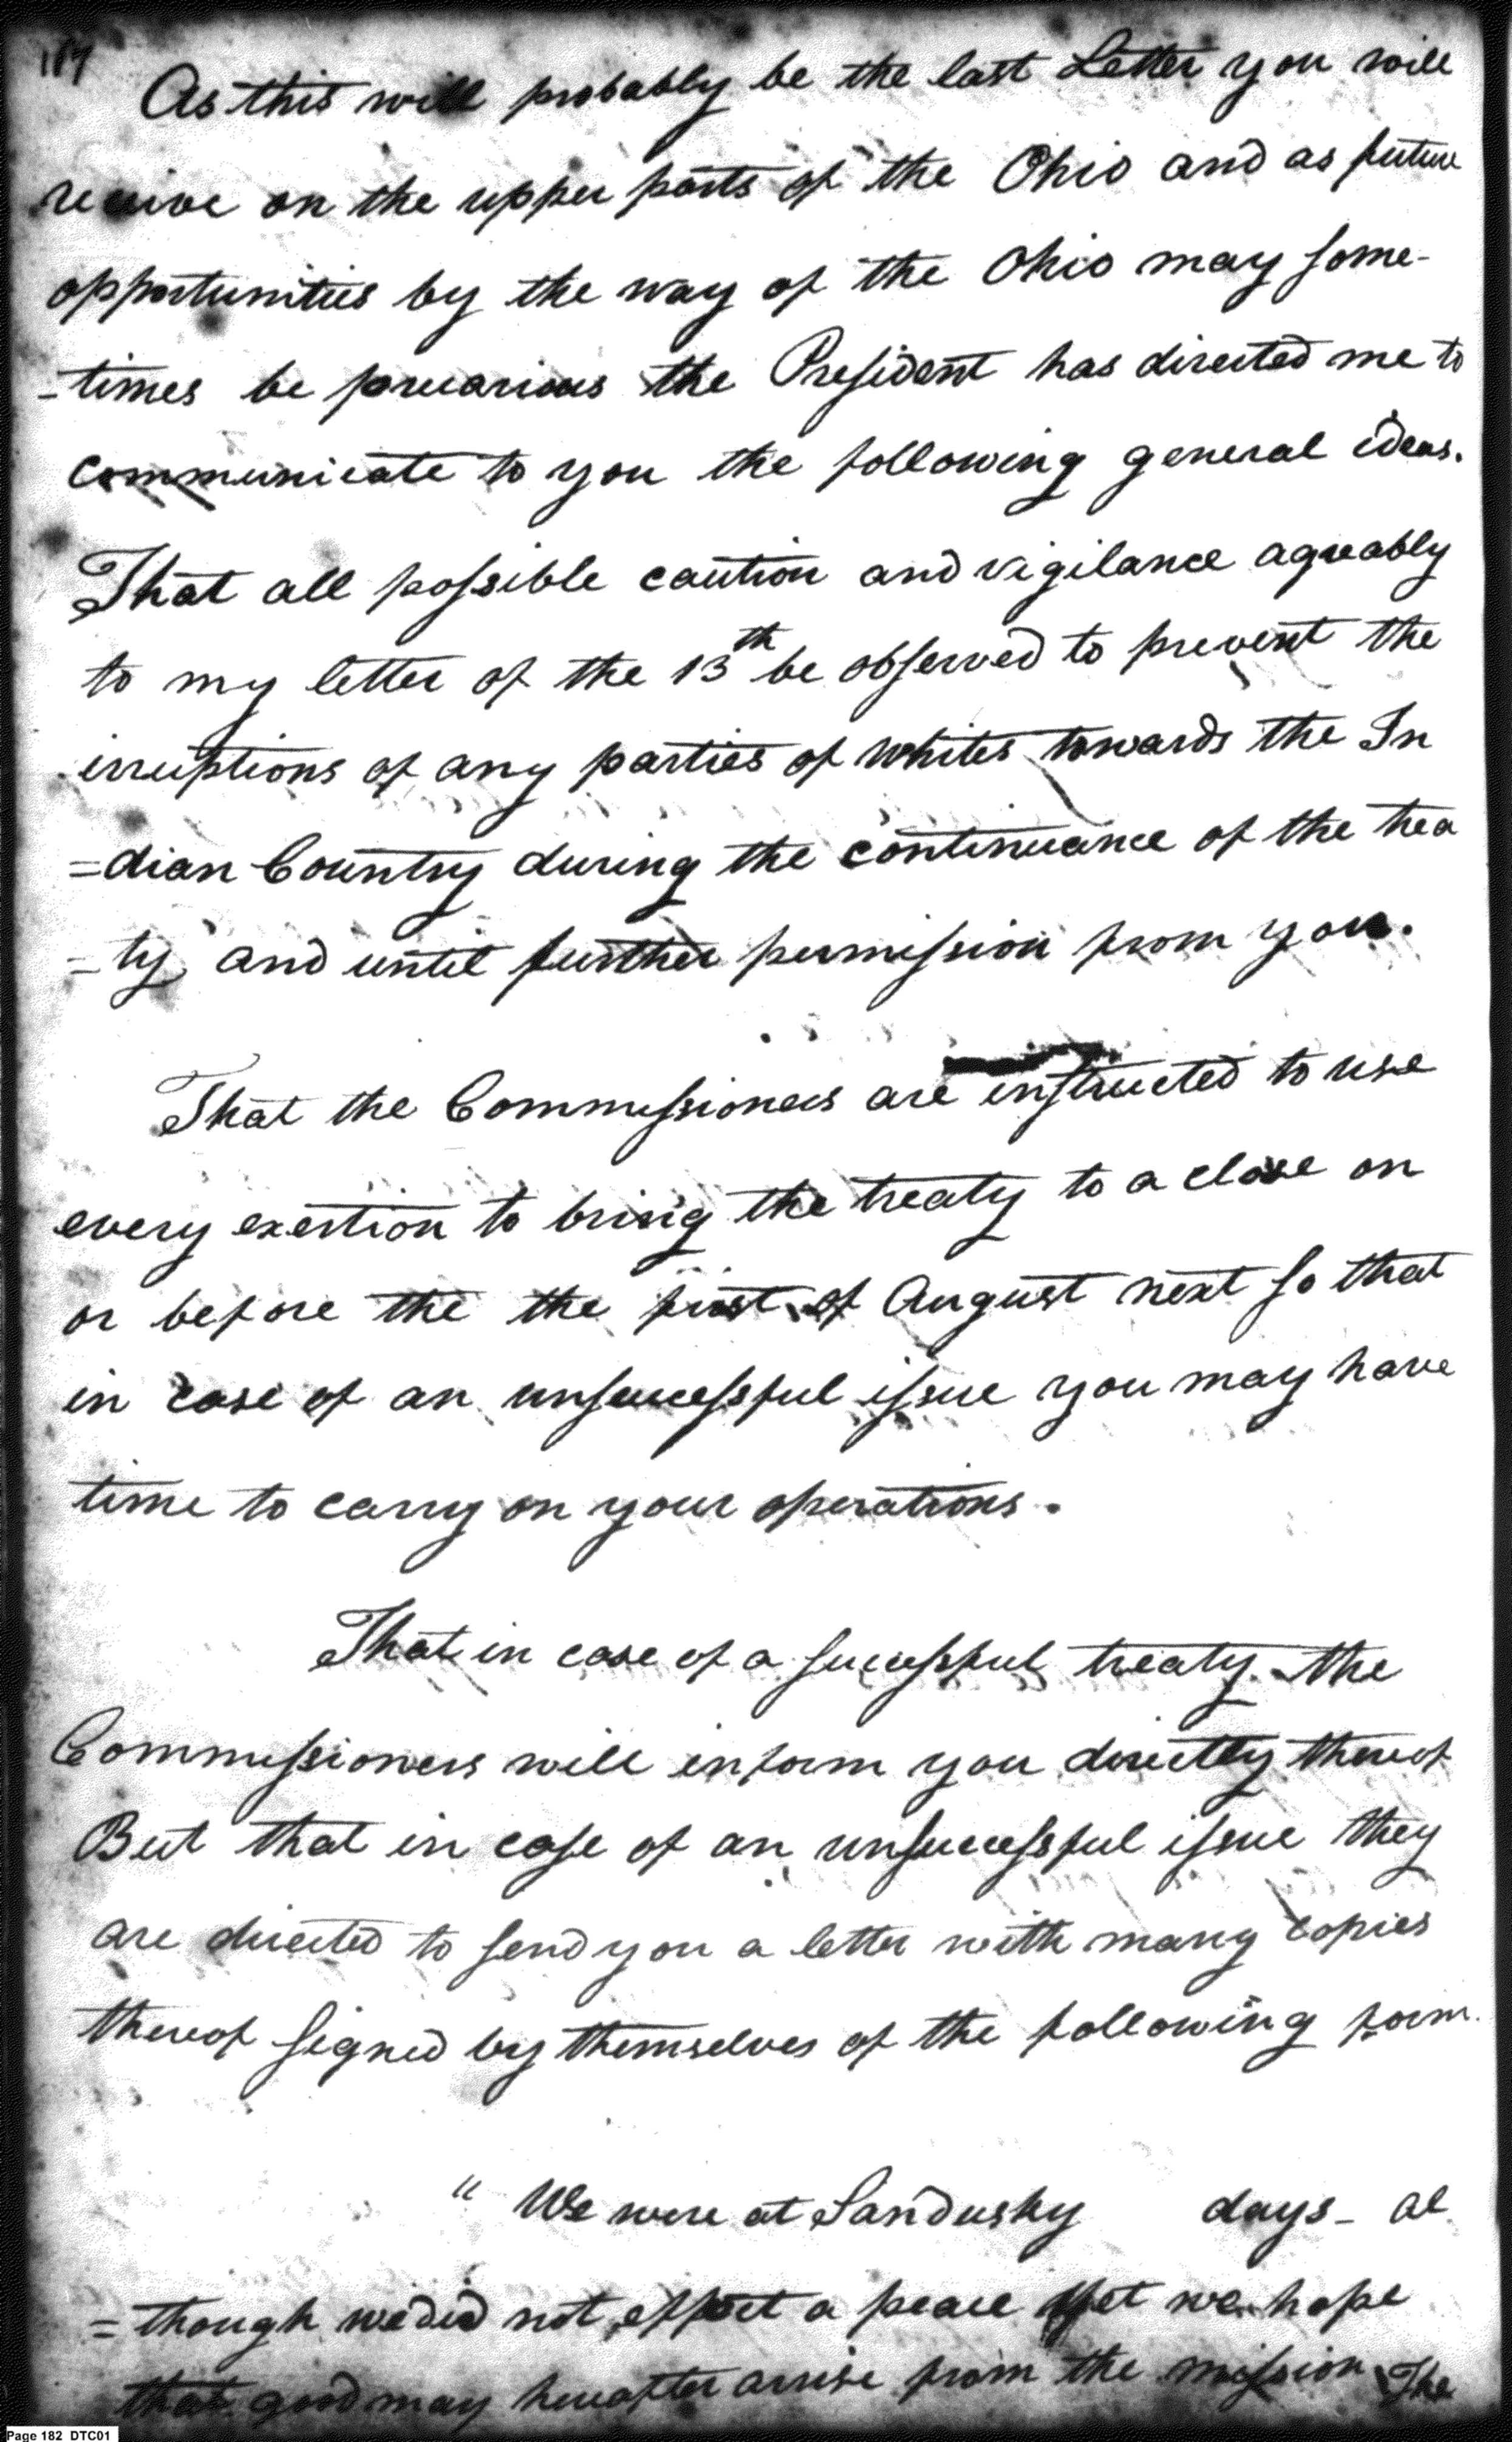 As this will probably be the last Letter you will
receive on the upper parts of the Ohio and as future
opportunities by the way of the Ohio may some-
-times be precarious the President has directed me to
communicate to you the following general ideas.
That all possible caution and vigilance agreably
to my letter of the 13th be observed to prevent the
irruptions of any parties of whites towards the In
=dian Country during the continuance of the trea
-ty and until further permission from you.
That the Commissioners are instructed to use
every exertion to bring the treaty to a close on
or before the the first of August next so that
in case of an unsuccessful issue you may have
time to carry on your operations.
That in case of a successful treaty the
Commissioners will inform you directly thereof
But that in case of an unsuccessful issue they
are directed to send you a letter with many Copies
thereof signed by themselves of the following form.
" We were at Sandusky days - al
=though we did not effect a peace yet we hope
that good may hereafter arrise from the mission The
Page 182 DTC01